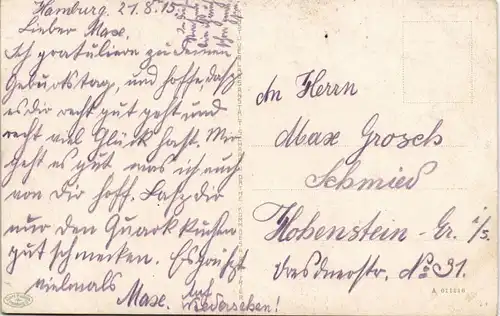 Hamburg. 21.8.15.
Lieber Max.
Ich gratuliere zu deinem
Geburtstag, und hoffe, dass
es dir recht gut geht und
recht viel Glück hast. Mir
geht es gut was ich auch
von Dir hoff. Lass dir
nur den Quarkkuchen
gut schmecken. Es grüßt
vielmals Max. Auf
wiedersehen!
An Herrn
Max Grosch
Schmied
Hohenstein-Er. i/S.
Dresdnerstr. No 31.